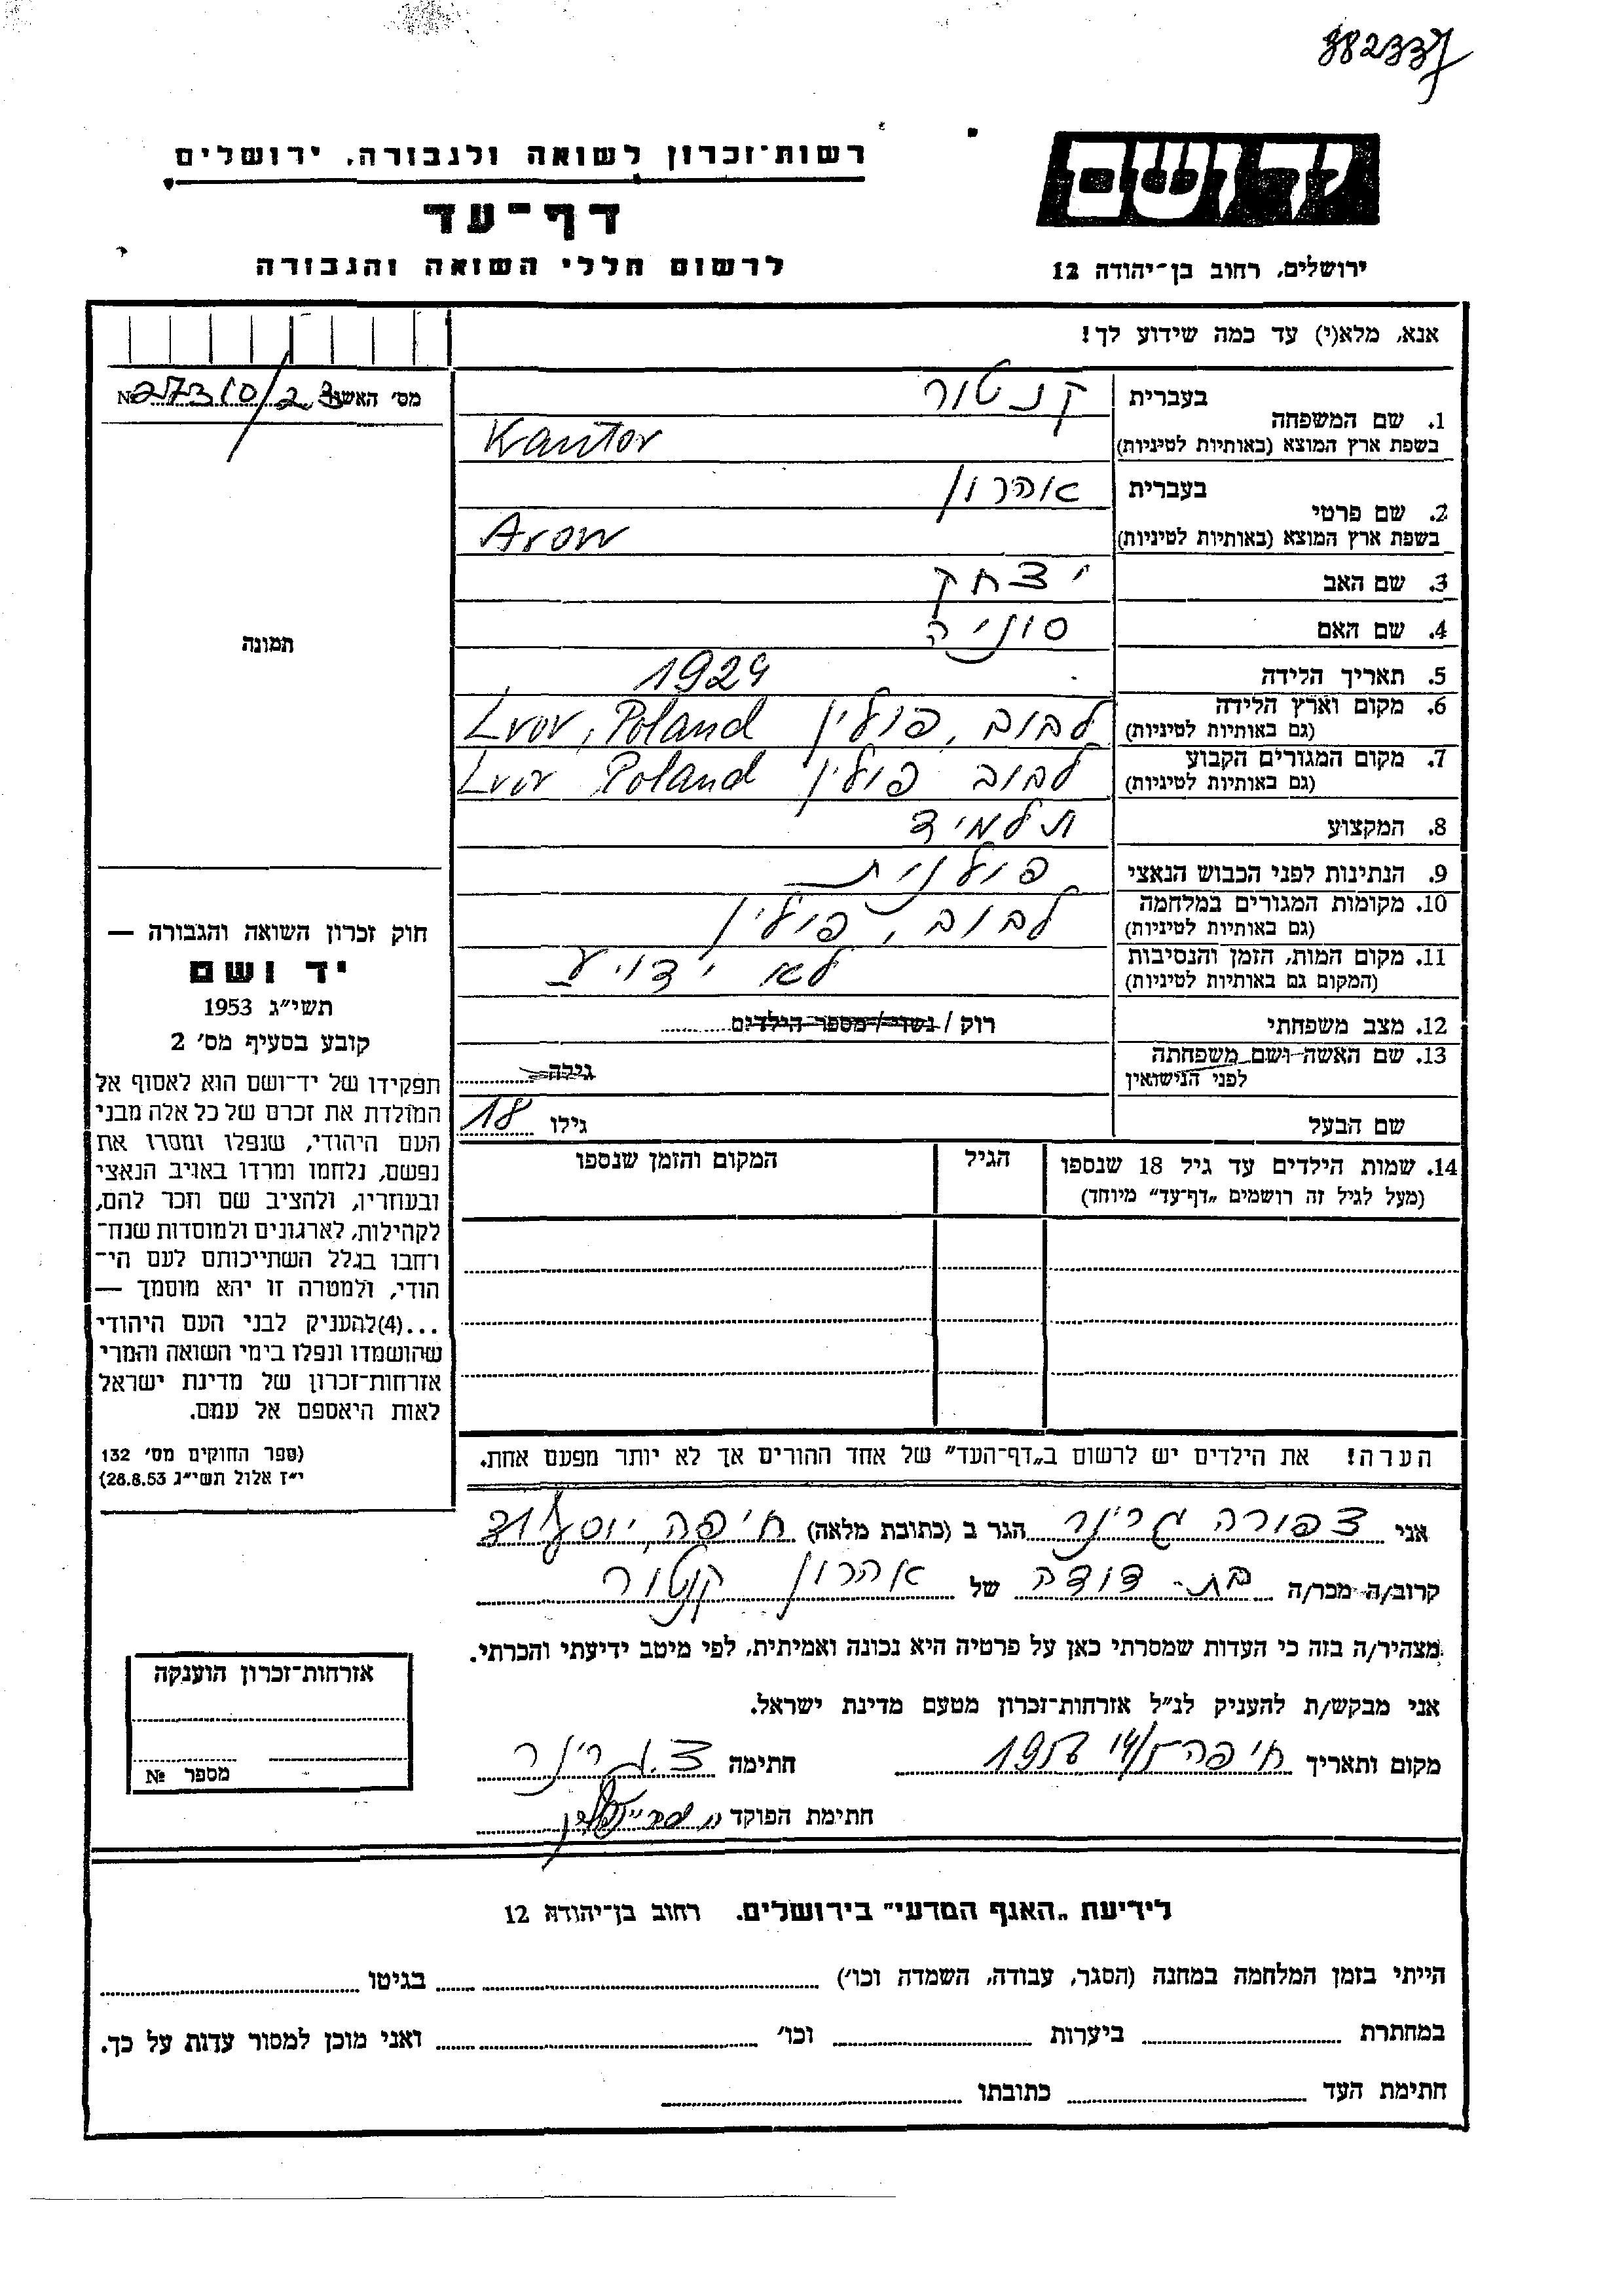 382337
רשות־זכרון לשואה ולגבורה, ירושלים
יד ושם
דף־עד
לרשום חללי השואה והגבורה
ירושלים, רחוב בן־יהודה 12
אנא, מלא(י) עד כמה שידוע לך!
מס׳ האשה № 27310/23
1. שם המשפחה בעברית קנטור
בשפת ארץ המוצא (באותיות לטיניות) Kantor
2. שם פרטי בעברית אהרון
בשפת ארץ המוצא (באותיות לטיניות) Aron
3. שם האב יצחק
4. שם האם סוניה
5. תאריך הלידה 1924
6. מקום וארץ הלידה (גם באותיות לטיניות) לבוב, פולין Lvov, Poland
7. מקום המגורים הקבוע (גם באותיות לטיניות) לבוב פולין Lvov Poland
8. המקצוע תלמיד
9. הנתינות לפני הכבוש הנאצי פולנית
10. מקומות המגורים במלחמה (גם באותיות לטיניות) לבוב, פולין
11. מקום המות, הזמן והנסיבות (המקום גם באותיות לטיניות) לא ידוע
12. מצב משפחתי רוק / נשוי / מספר הילדים
13. שם האשה ושם משפחתה לפני הנישואין גילה
שם הבעל גילו 18
14. שמות הילדים עד גיל 18 שנספו
(מעל לגיל זה רושמים „דף־עד״ מיוחד)
הגיל
המקום והזמן שנספו
תמונה
חוק זכרון השואה והגבורה —
יד ושם
תשי״ג 1953
קובע בסעיף מס׳ 2
תפקידו של יד־ושם הוא לאסוף אל
המולדת את זכרם של כל אלה מבני
העם היהודי, שנפלו ומסרו את
נפשם, נלחמו ומרדו באויב הנאצי
ובעוזריו, ולהציב שם וזכר להם,
לקהילות, לארגונים ולמוסדות שנח־
רחבו בגלל השתייכותם לעם הי־
הודי, ולמטרה זו יהא מוסמך —
...(4)להעניק לבני העם היהודי
שהושמדו ונפלו בימי השואה והמרי
אזרחות־זכרון של מדינת ישראל
לאות היאספם אל עמם.
(ספר החוקים מס׳ 132
י״ז אלול תשי״ג 28.8.53)
הערה! את הילדים יש לרשום ב„דף־העד״ של אחד ההורים אך לא יותר מפעם אחת.
אני צפורה גרינר הגר ב (כתובת מלאה) חיפה,
קרוב/ה מכר/ה בת-דודה של אהרון קנטור
מצהיר/ה בזה כי העדות שמסרתי כאן על פרטיה היא נכונה ואמיתית, לפי מיטב ידיעתי והכרתי.
אני מבקש/ת להעניק לנ״ל אזרחות־זכרון מטעם מדינת ישראל.
מקום ותאריך חיפה חתימה צ. גרינר
חתימת הפוקד
אזרחות־זכרון הוענקה
מספר №
לידיעת „האגף המדעי״ בירושלים. רחוב בן־יהודה 12
הייתי בזמן המלחמה במחנה (הסגר, עבודה, השמדה וכו׳) בגיטו
במחתרת ביערות וכו׳ ואני מוכן למסור עדות על כך.
חתימת העד כתובתו